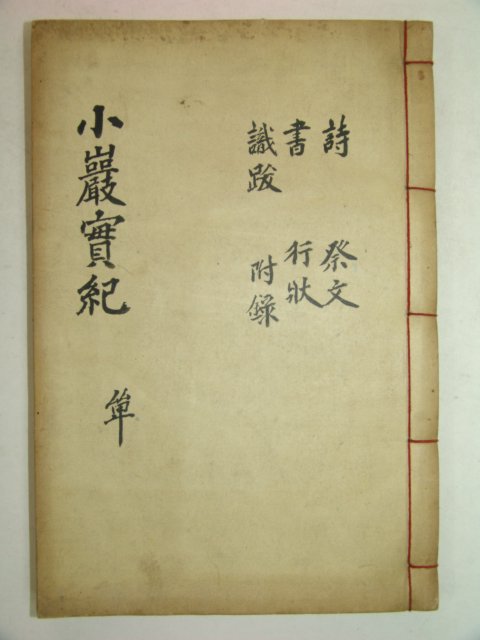 詩 祭文
書 行狀
識跋 附錄
小巖實紀 單